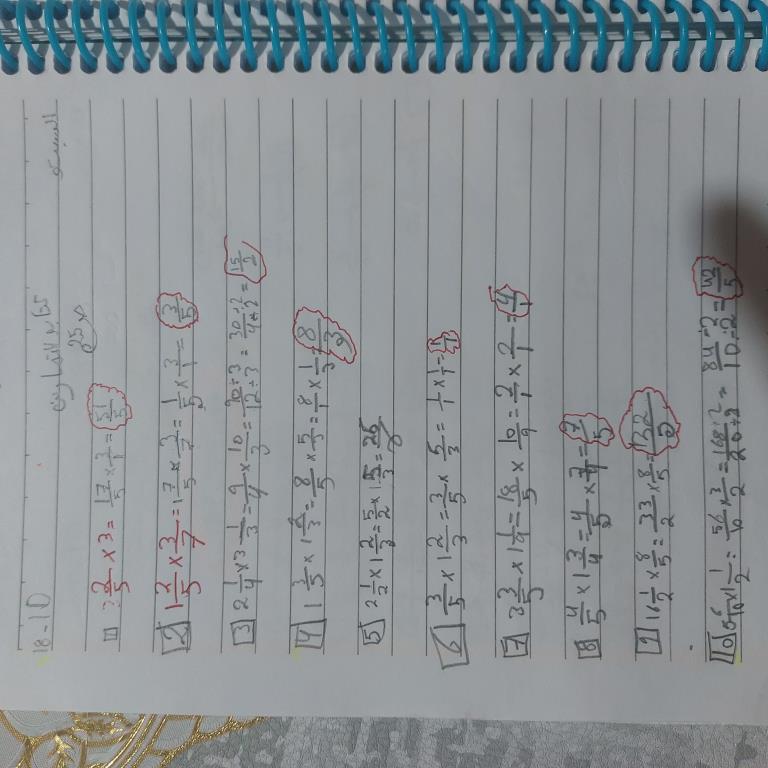 18-10
1 3 2/5 × 3 = 17/5 × 3/1 = 51/5
2 1 2/5 × 3/7 = 17/5 × 3/7 = 1/5 × 3/1 = 3/5
3 2 1/4 × 3 1/3 = 9/4 × 10/3 = 90÷3/12÷3 = 30÷2/4÷2 = 15/2
4 1 3/5 × 1 2/3 = 8/5 × 5/3 = 8/1 × 1/3 = 8/3
5 2 1/2 × 1 2/3 = 5/2 × 1
6 3/5 × 1 2/3 = 3/5 × 5/3 = 1/1 × 1/1 = 1/1
7 3 3/5 × 1 1/9 = 18/5 × 10/9 = 2/1 × 2/1 = 4/1
8 4/5 × 1 3/4 = 4/5 × 7/4 = 7/5
9 16 1/2 × 8/5 = 33/2 × 8/5 = 132/5
10 5 6/10 × 1 1/2 = 56/10 × 3/2 = 168÷2/20÷2 = 84÷2/10÷2 = 42/5